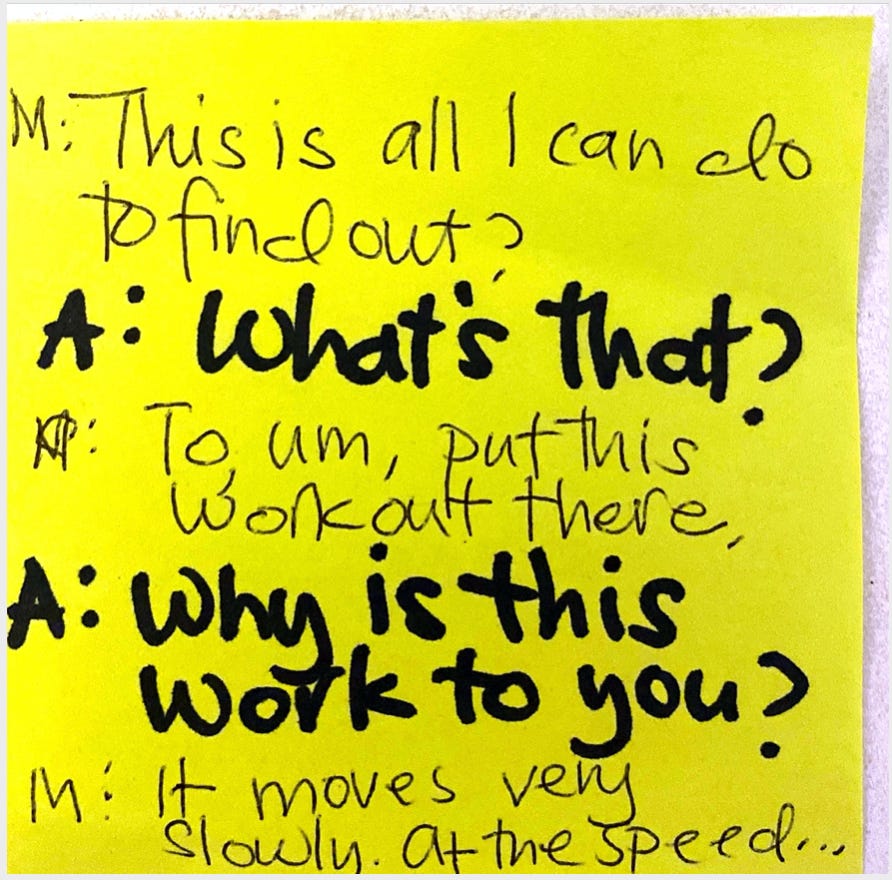 M: This is all I can do
to find out?
A: What's that?
: To, um, put this
work out there,
A: Why is this
work to you?
M: It moves very
slowly. At the speed...